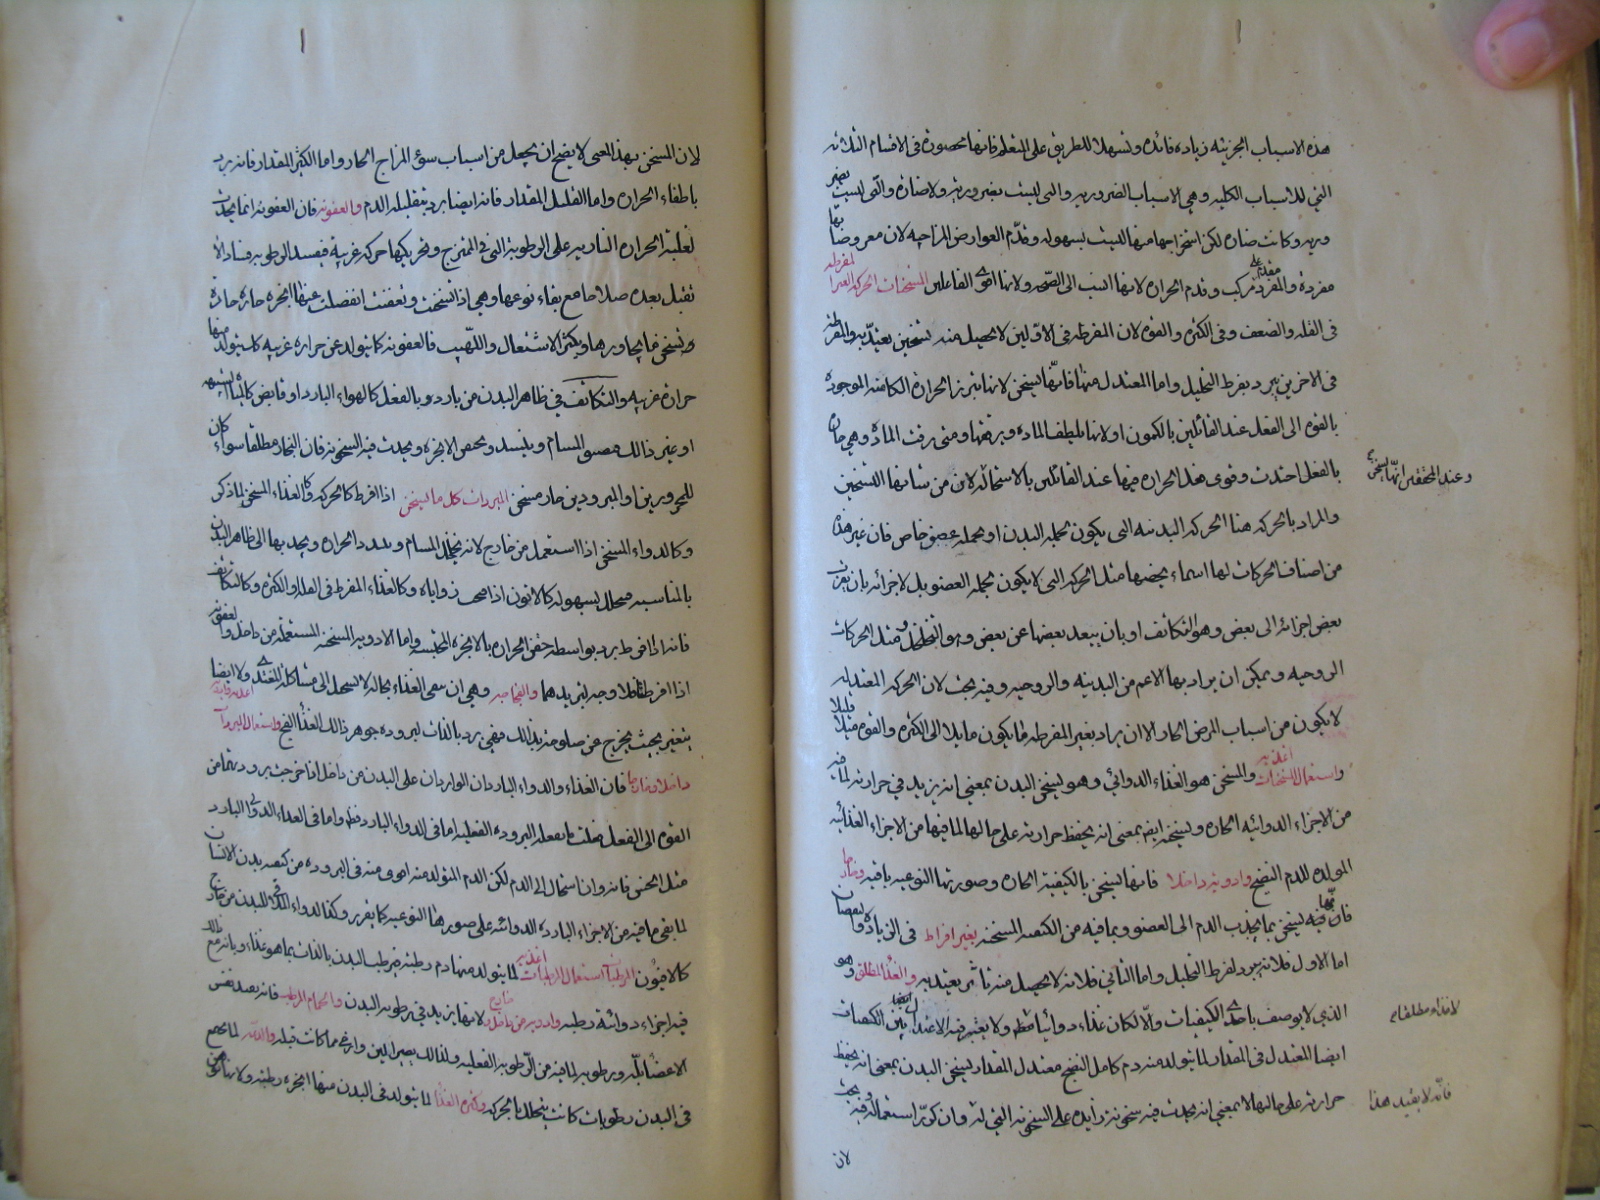 هذه الاسباب الجزئيه زياده فائده وتسهيلا للطريق على المتعلم فانها محصورة فى الاقسام الثلاثه
التي للاسباب الكليه وهي الاسباب الضروريه والتى ليست بضروريه ولا ضارة والتى ليست بضر
وريه وكانت ضاره لكن استخراجها منها ليست بسهوله وقدم العوارض المزاجيه لان معروضاتها
مفردة والمفرد مقدم على مركب وقدم الحراره لانها انسب الى الصحه ولانها اقوى الفاعلين المسخنات الحركه الغير المفرطه
فى القله والضعف وفى الكثره والقوه لان المفرطه فى الاولين لا يحصل منه تسخين يعتد به والمفرطه
فى الاخرين يبرد بفرط التحليل واما المعتدل منها فانها تسخن لانها تبرز الحرارة الكامنه الموجوده
بالقوه الى الفعل عند القائلين بالكمون او لانها تلطف الماده وترققها ومتى رقت المادة وهي حاره
بالفعل احتدت وقوى هذه الحراره فيها عند القائلين بالاستحاله لان من شانها التسخين
وعند المحققين انها تسخن
والمراد بالحركه هنا الحركه البدنيه التى يكون بجملة البدن او بجمله عضو خاص فان غير هذه
من اصناف الحركات لها اسماء يخصها مثل الحركه التى لا يكون بجمله العضو بل لاجزائه بان يقرب
بعض اجزائه الى بعض وهو التكاثف او بان يبعد بعضها عن بعض وهو التخلخل ومثل الحركات
الروحيه ويمكن ان يراد بها الاعم من البدنيه والروحيه وفيه بحث لان الحركه المعتدله
لا يكون من اسباب المرض الحار الا ان يراد بغير المفرطه ما يكون مايلا الى الكثره والقوه ميلا قليلا
واستعمال المسخنات اغذيه والمسخن هو الغذاء الدوائي وهو يسخن البدن بمعنى انه يزيد في حرارته لما فيه
من الاجزاء الدوائيه الحاره ويسخنه ايضا بمعنى انه يحفظ حرارته على حالها لما فيها من الاجزاء الغذائيه
المولده للدم النضيج وادويه داخلا وخارجا فانها تسخن بالكيفية الحاره وصورتها النوعيه باقيه
فيه تسخن بما يجذب الدم الى العضو وبما فيه من الكيفيه المسخنه بغير افراط فى الزياده والنقصان
اما الاول فلانه يبرد لفرط التحليل واما الثاني فلانه لا يحصل منه تاثير يعتد به والغذا المطلق وهو
الذي لا يوصف باحدى الكيفيات والا لكان غذاء دوائيا لا غذاء مطلقا ولا يعتبر فيه الاعتدال بين الكيفيات
ايضا المعتدل فى المقدار لما يتولد منه دم كامل النضج معتدل المقدار يسخن البدن بمعنى انه يحفظ
حرارته على حالها لا بمعنى انه يحدث فيه سخونه زايده على السخونه التي له وان كثر استعماله فيه بحث
فانه لا يفيد هذا
لان
لان المسخن بهذا المعنى لا يصح ان يجعل من اسباب سوء المزاج الحار واما الكثير المقدار فانه يبرد
باطفاء الحراره واما القليل المقدار فانه ايضا يبرد بتقليله الدم والعفونه فان العفونه انما يحدث
لغلبة الحراره الناريه على الرطوبة التي في الممتزج وتحريكها حركه غريبة فيفسد الرطوبه فسادا لا
تقبل بعده صلاحا مع بقاء نوعها وهي اذا تسخنت وتعفنت انفصلت عنها ابخره حاره حادة
وتسخن ما يجاورها ويكثر الاشتعال والتلهيب فالعفونه كما يتولد عن حراره غريبه كذلك يتولد منها
حرارة غريبه والتكاثف في ظاهر البدن من بارد بالفعل كالهواء البارد او قابض كالمياه الشبيه
او غير ذلك فيضيق المسام وينسد ويحتقن الابخره ويحدث فيه السخونه فان البخار مطلقا سواء كان
للمحرورين او المبرودين حار مسخن المبردات كل ما يسخن اذا افرط كالحركه وكالغذاء المسخن لما ذكر
وكالدواء المسخن اذا استعمل من خارج لانه يخلخل المسام ويبدد الحراره ويجذبها الى ظاهر البدن
بالمناسبه فيتحلل بسهوله كالاتون اذا فتحت زواياه وكالغذاء المفرط فى القله والكثره وكالتكاثف
فانه اذا افرط يبرد بواسطه حقن الحراره بالابخره المحتبسه واما الادويه المسخنه المستعمله من داخل والعفونه
اذا افرطت فلا وجه لتبريدهما والفجاجه وهي ان يبقى الغذاء بحاله لا يستحيل الى مشاكلة المغتذى ولا ايضا
يتغير بحيث يخرج عن صلوحه بذلك فهي تبرد بالذات لبروده جوهر ذلك الغذا الفج واستعمال المبردات اغذيه وادويه
داخلا وخارجا فان الغذاء والدواء الباردان الواردان على البدن من داخل اذا خرجت برودتهما من
القوه الى الفعل فعلت ما تفعله البروده الفعليه اما فى الدواء البارد فظ واما فى الغذاء الدوائى البارد
مثل الخس فانه وان استحال الى الدم لكن الدم المتولد منه اقوى منه فى البروده من كيفيه بدن الانسان
لما بقى ما فيه من الاجزاء البارده الدوائيه على صورها النوعيه كما يقرر وكذا الدواء الملاقى للبدن من خارج
كالافيون المرطبات استعمال المرطبات اغذيه لما يتولد منها دم رطب فيرطب البدن بالذات بما هو غذاء وبانه مع ذلك
فيه اجزاء دوائية رطبه وادويه من داخل وخارج لانها يزيد في رطوبه البدن والحمام الرطب فانه يصد نفس
الاعضاء بله ورطوبه لما فيه من الرطوبه الفعليه ولذلك يصير الين وارخى مما كانت قبله والدعه لما يجتمع
فى البدن رطوبات كانت يتحلل بالحركه وكثره الغذا لما يتولد فى البدن منها ابخره رطبه ولانها تكون